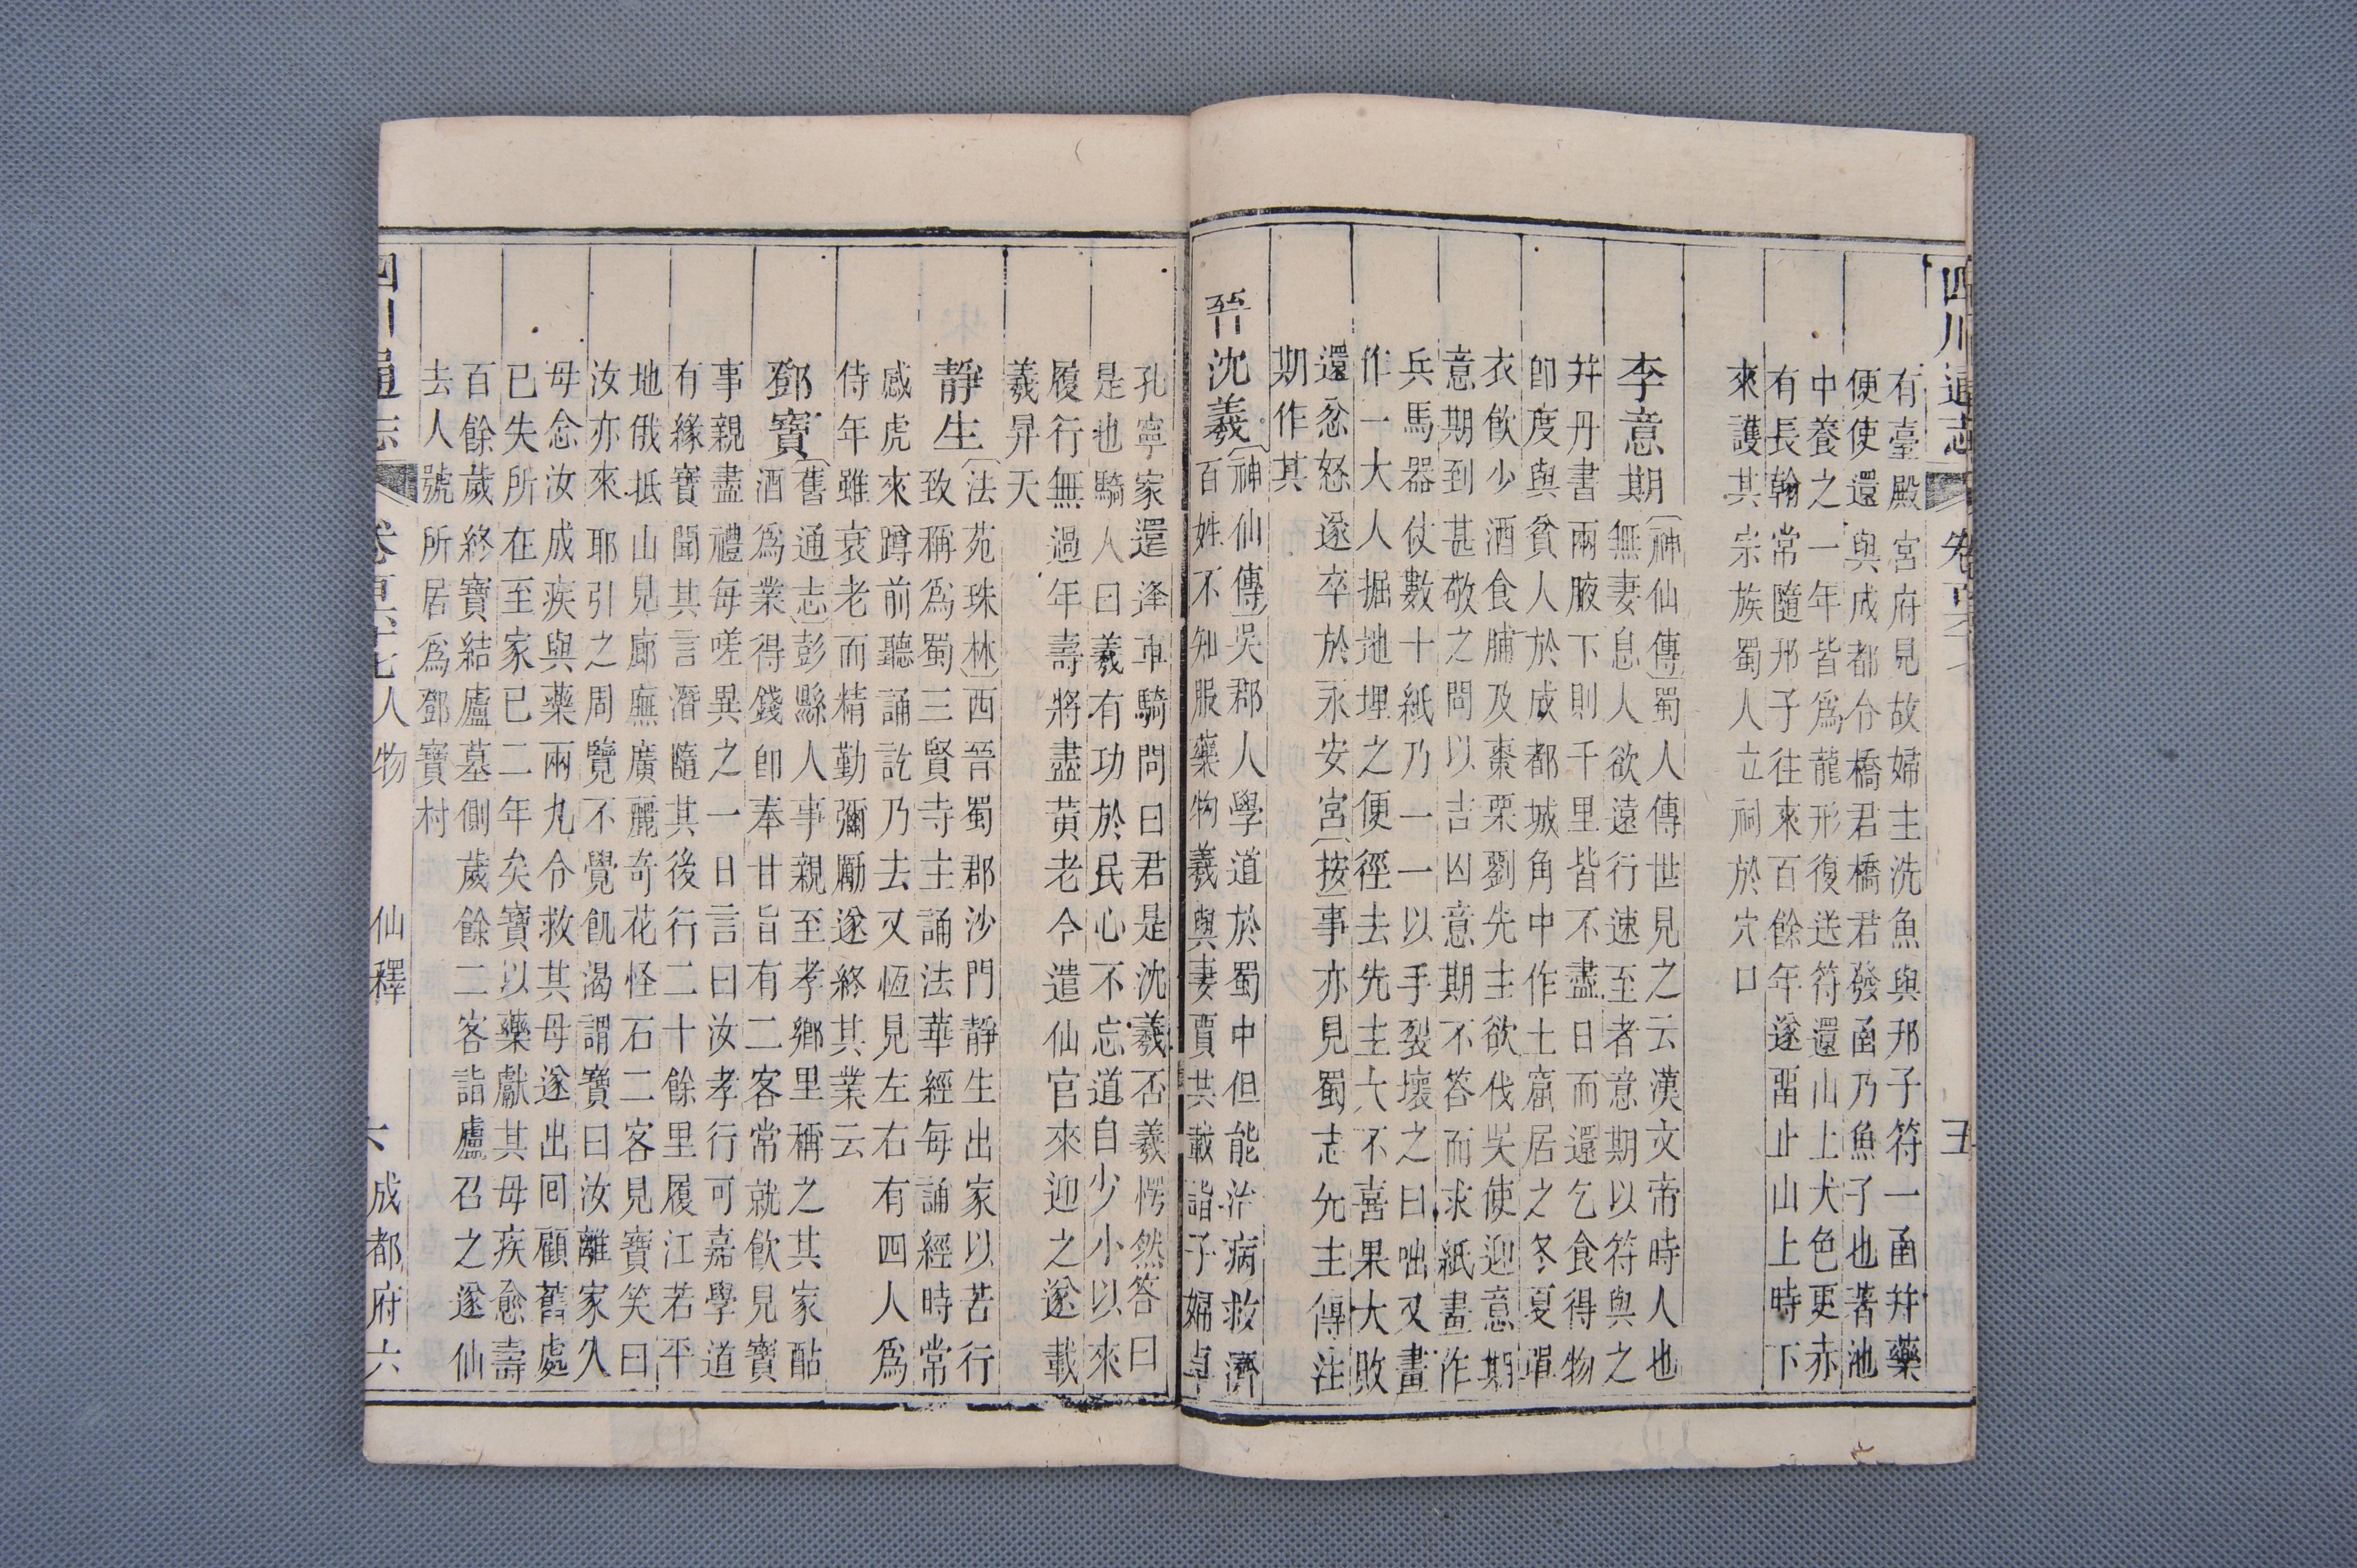 四川通志 卷百六十七 五
有臺殿宮府見故婦主洗魚與邛子符一函幷藥
便使還與成都令橋君橋君發函乃魚子也著池
中養之一年皆爲龍形復送符還山上犬色更赤
有長翰常隨邛子往來百餘年遂畱止山上時下
來護其宗族蜀人立祠於穴口
李意期〔神仙傳〕蜀人傳世見之云漢文帝時人也
無妻息人欲遠行速至者意期以符與之
幷丹書兩腋下則千里皆不盡日而還乞食得物
卽度與貧人於成都城角中作土窟居之冬夏單
衣飮少酒食脯及棗栗劉先主欲伐吳使迎意期
意期到甚敬之問以吉凶意期不答而求紙畫作
兵馬器仗數十紙乃一一以手裂壞之曰咄又畫
作一大人掘地埋之便徑去先主大不喜果大敗
還忿怒遂卒於永安宮〔按〕事亦見蜀志先主傳注
期作其
晉沈羲〔神仙傳〕吳郡人學道於蜀中但能治病救濟
百姓不知服藥物羲與妻賈共載詣子婦卓
孔寧家還逢車騎問曰君是沈羲否羲愕然答曰
是也騎人曰羲有功於民心不忘道自少小以來
履行無過年壽將盡黃老令遣仙官來迎之遂載
羲昇天
靜生〔法苑珠林〕西晉蜀郡沙門靜生出家以苦行
致稱爲蜀三賢寺主誦法華經每誦經時常
感虎來蹲前聽誦訖乃去又恆見左右有四人爲
侍年雖衰老而精勤彌勵遂終其業云
鄧寶〔舊通志〕彭縣人事親至孝鄉里稱之其家酤
酒爲業得錢卽奉甘旨有二客常就飮見寶
事親盡禮每嗟異之一日言曰汝孝行可嘉學道
有緣寶聞其言潛隨其後行二十餘里履江若平
地俄抵山見廊廡廣麗奇花怪石二客見寶笑曰
汝亦來耶引之周覽不覺飢渴謂寶曰汝離家久
母念汝成疾與藥兩丸令救其母遂出囘顧舊處
已失所在至家已二年矣寶以藥獻其母疾愈壽
百餘歲終寶結廬墓側歲餘二客詣廬召之遂仙
去人號所居爲鄧寶村
四川通志 卷百六十七人物 仙釋 六 成都府六